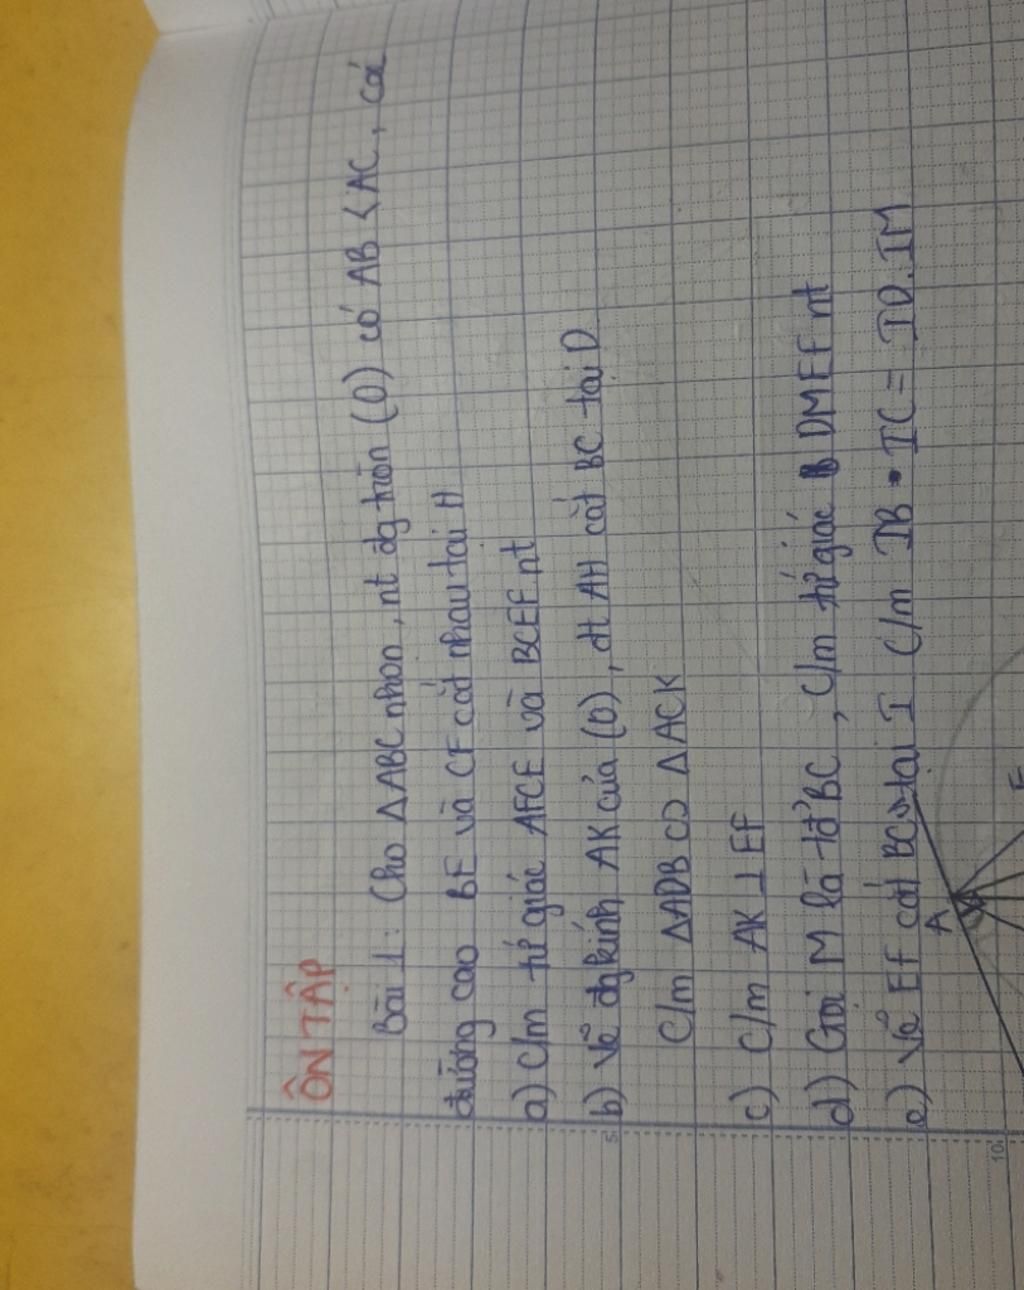 ÔN TẬP
Bài 1: Cho ΔABC nhọn, nt đg tròn (O) có AB < AC, cá
đường cao BE và CF cắt nhau tại H
a) C/m tứ giác AFCE và BCEF nt
b) Vẽ đg kính AK của (O), đt AH cắt BC tại D
C/m ΔADB ∽ ΔACK
c) C/m AK ⊥ EF
d) Gọi M là tđ' BC, C/m tứ giác DMEF nt
e) Vẽ EF cắt BC tại I C/m IB . IC = ID . IM
A
F
5
10